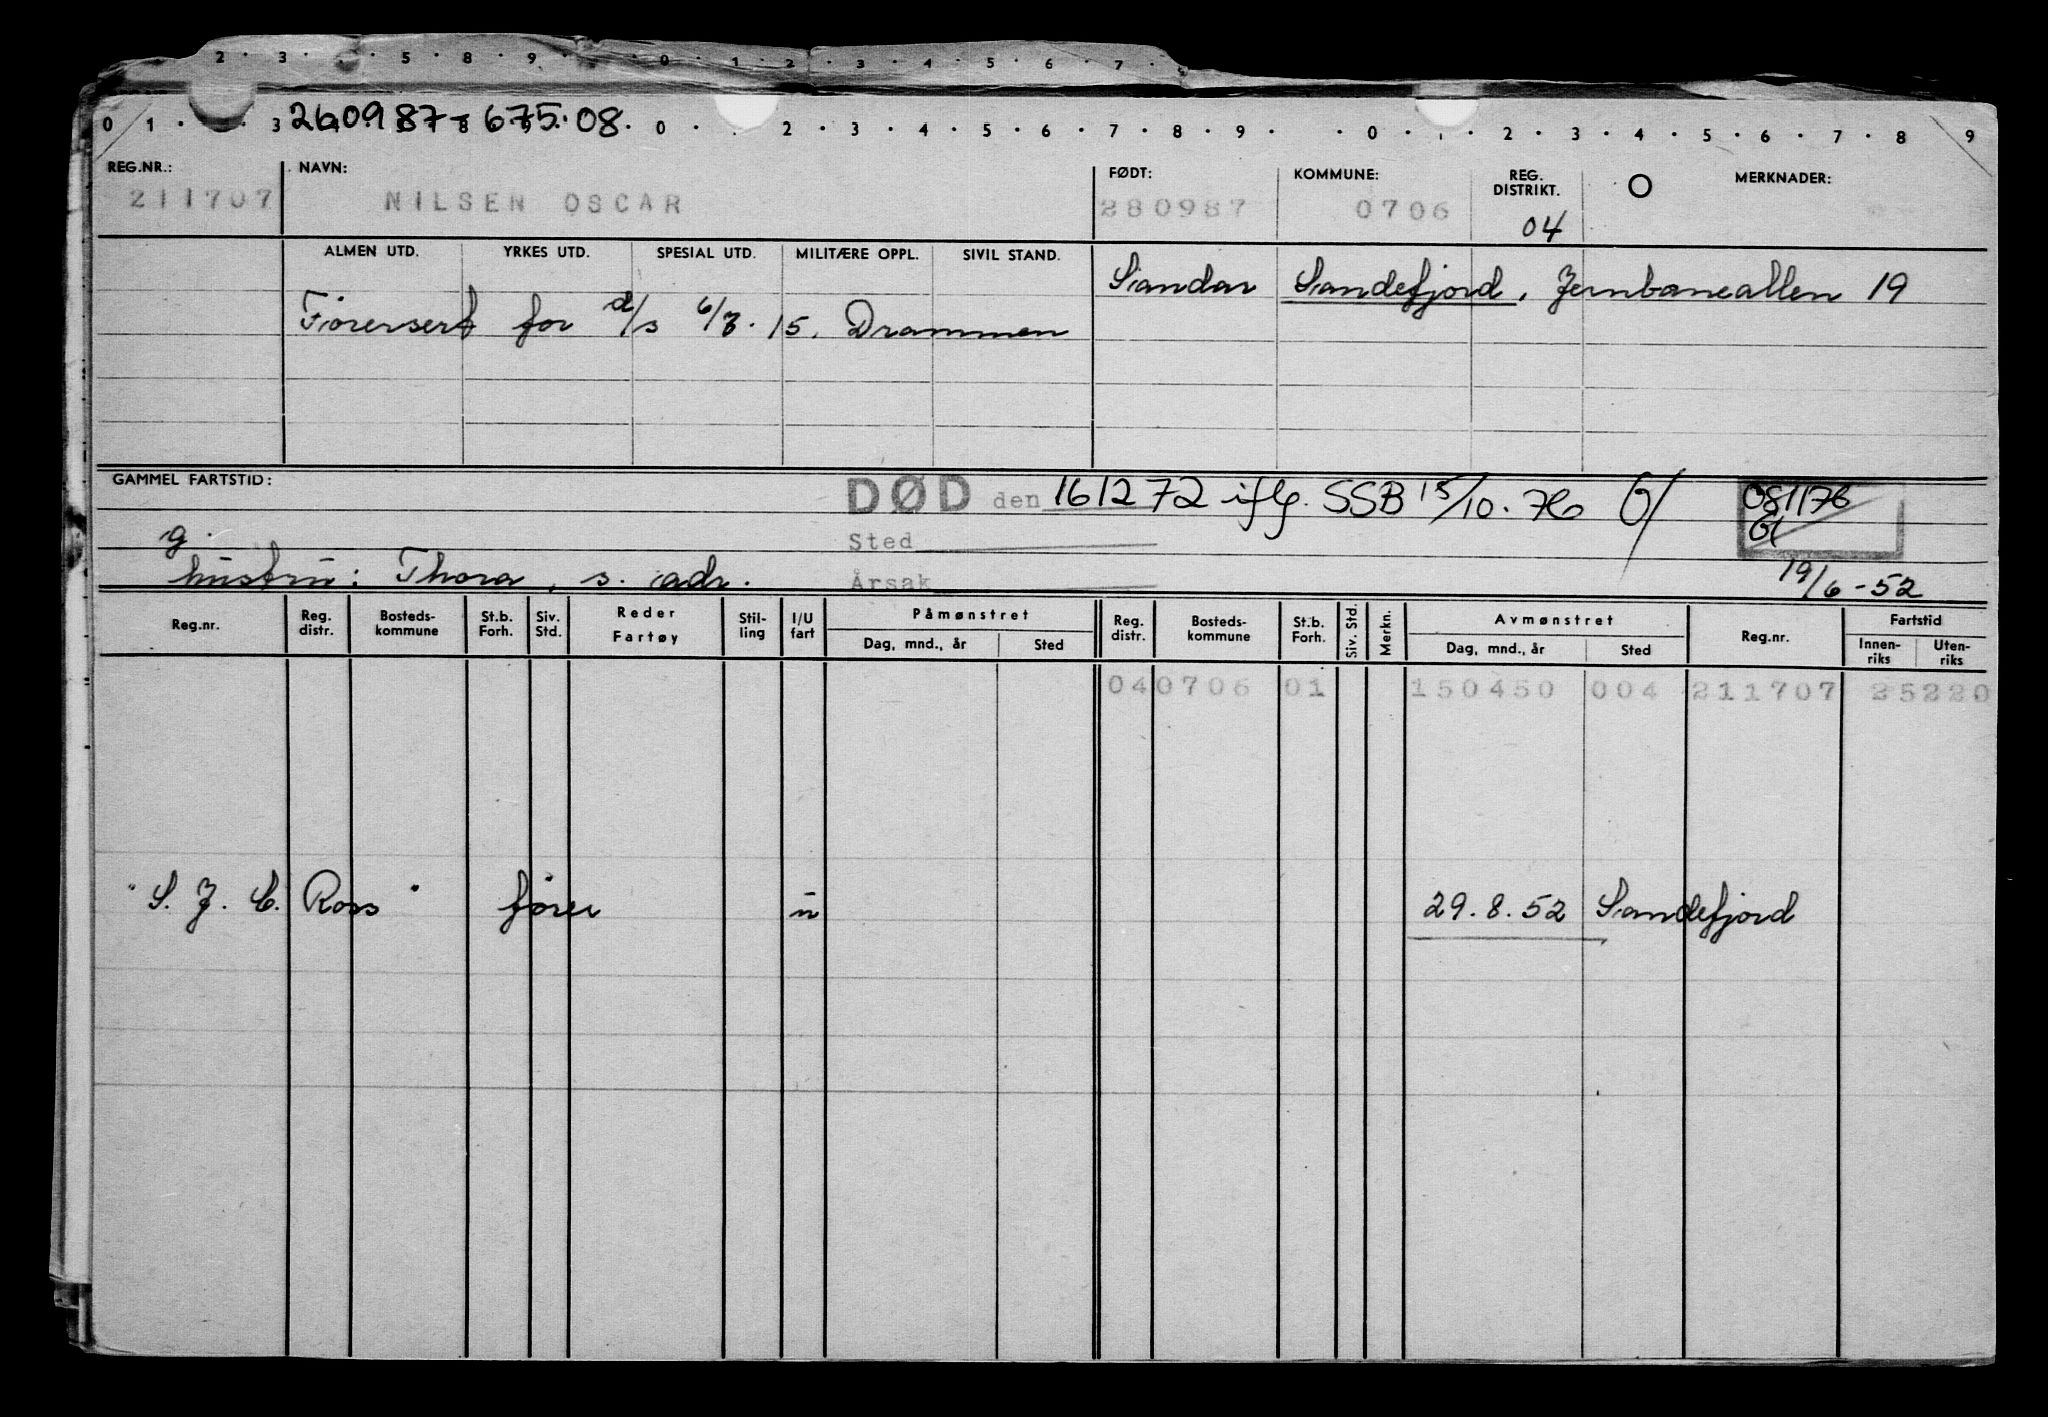 2 · 3 · 5 · 8 · 9 · 0 · 1 · 2 · 3 · 4 · 5 · 6 · 7 ·
0 1 · 3 260987-675.08. 0 · 2 · 3 · 4 · 5 · 6 · 7 · 8 · 9 · · 0 · 1 · 2 · 3 · 4 · 5 · 6 · 7 · 8 9
REG.NR.: NAVN: FØDT: KOMMUNE: REG. DISTRIKT. O MERKNADER:
211707 NILSEN OSCAR 280987 0706 04
ALMEN UTD. YRKES UTD. SPESIAL UTD. MILITÆRE OPPL. SIVIL STAND.
Sandar Sandefjord, Jernbanealleen 19
Førersert for d/s 6/7.15. Drammen
GAMMEL FARTSTID:
DØD den 161272 iflg. SSB 15/10.76 G/
081176
Gl
g.
Sted
hustru: Thora, s. adr.
Årsak
19/6-52
Reg.nr. Reg. distr. Bosteds-kommune St.b. Forh. Siv. Std. Reder Fartøy Stil-ling I/U fart Påmønstret Dag, mnd., år Sted Reg. distr. Bosteds-kommune St.b. Forh. Siv. Std. Merkn. Avmønstret Dag, mnd., år Sted Reg.nr. Fartstid Innen-riks Uten-riks
04 0706 01 150450 004 211707 25220
"S. J. C. Ross" fører u 29.8.52 Sandefjord